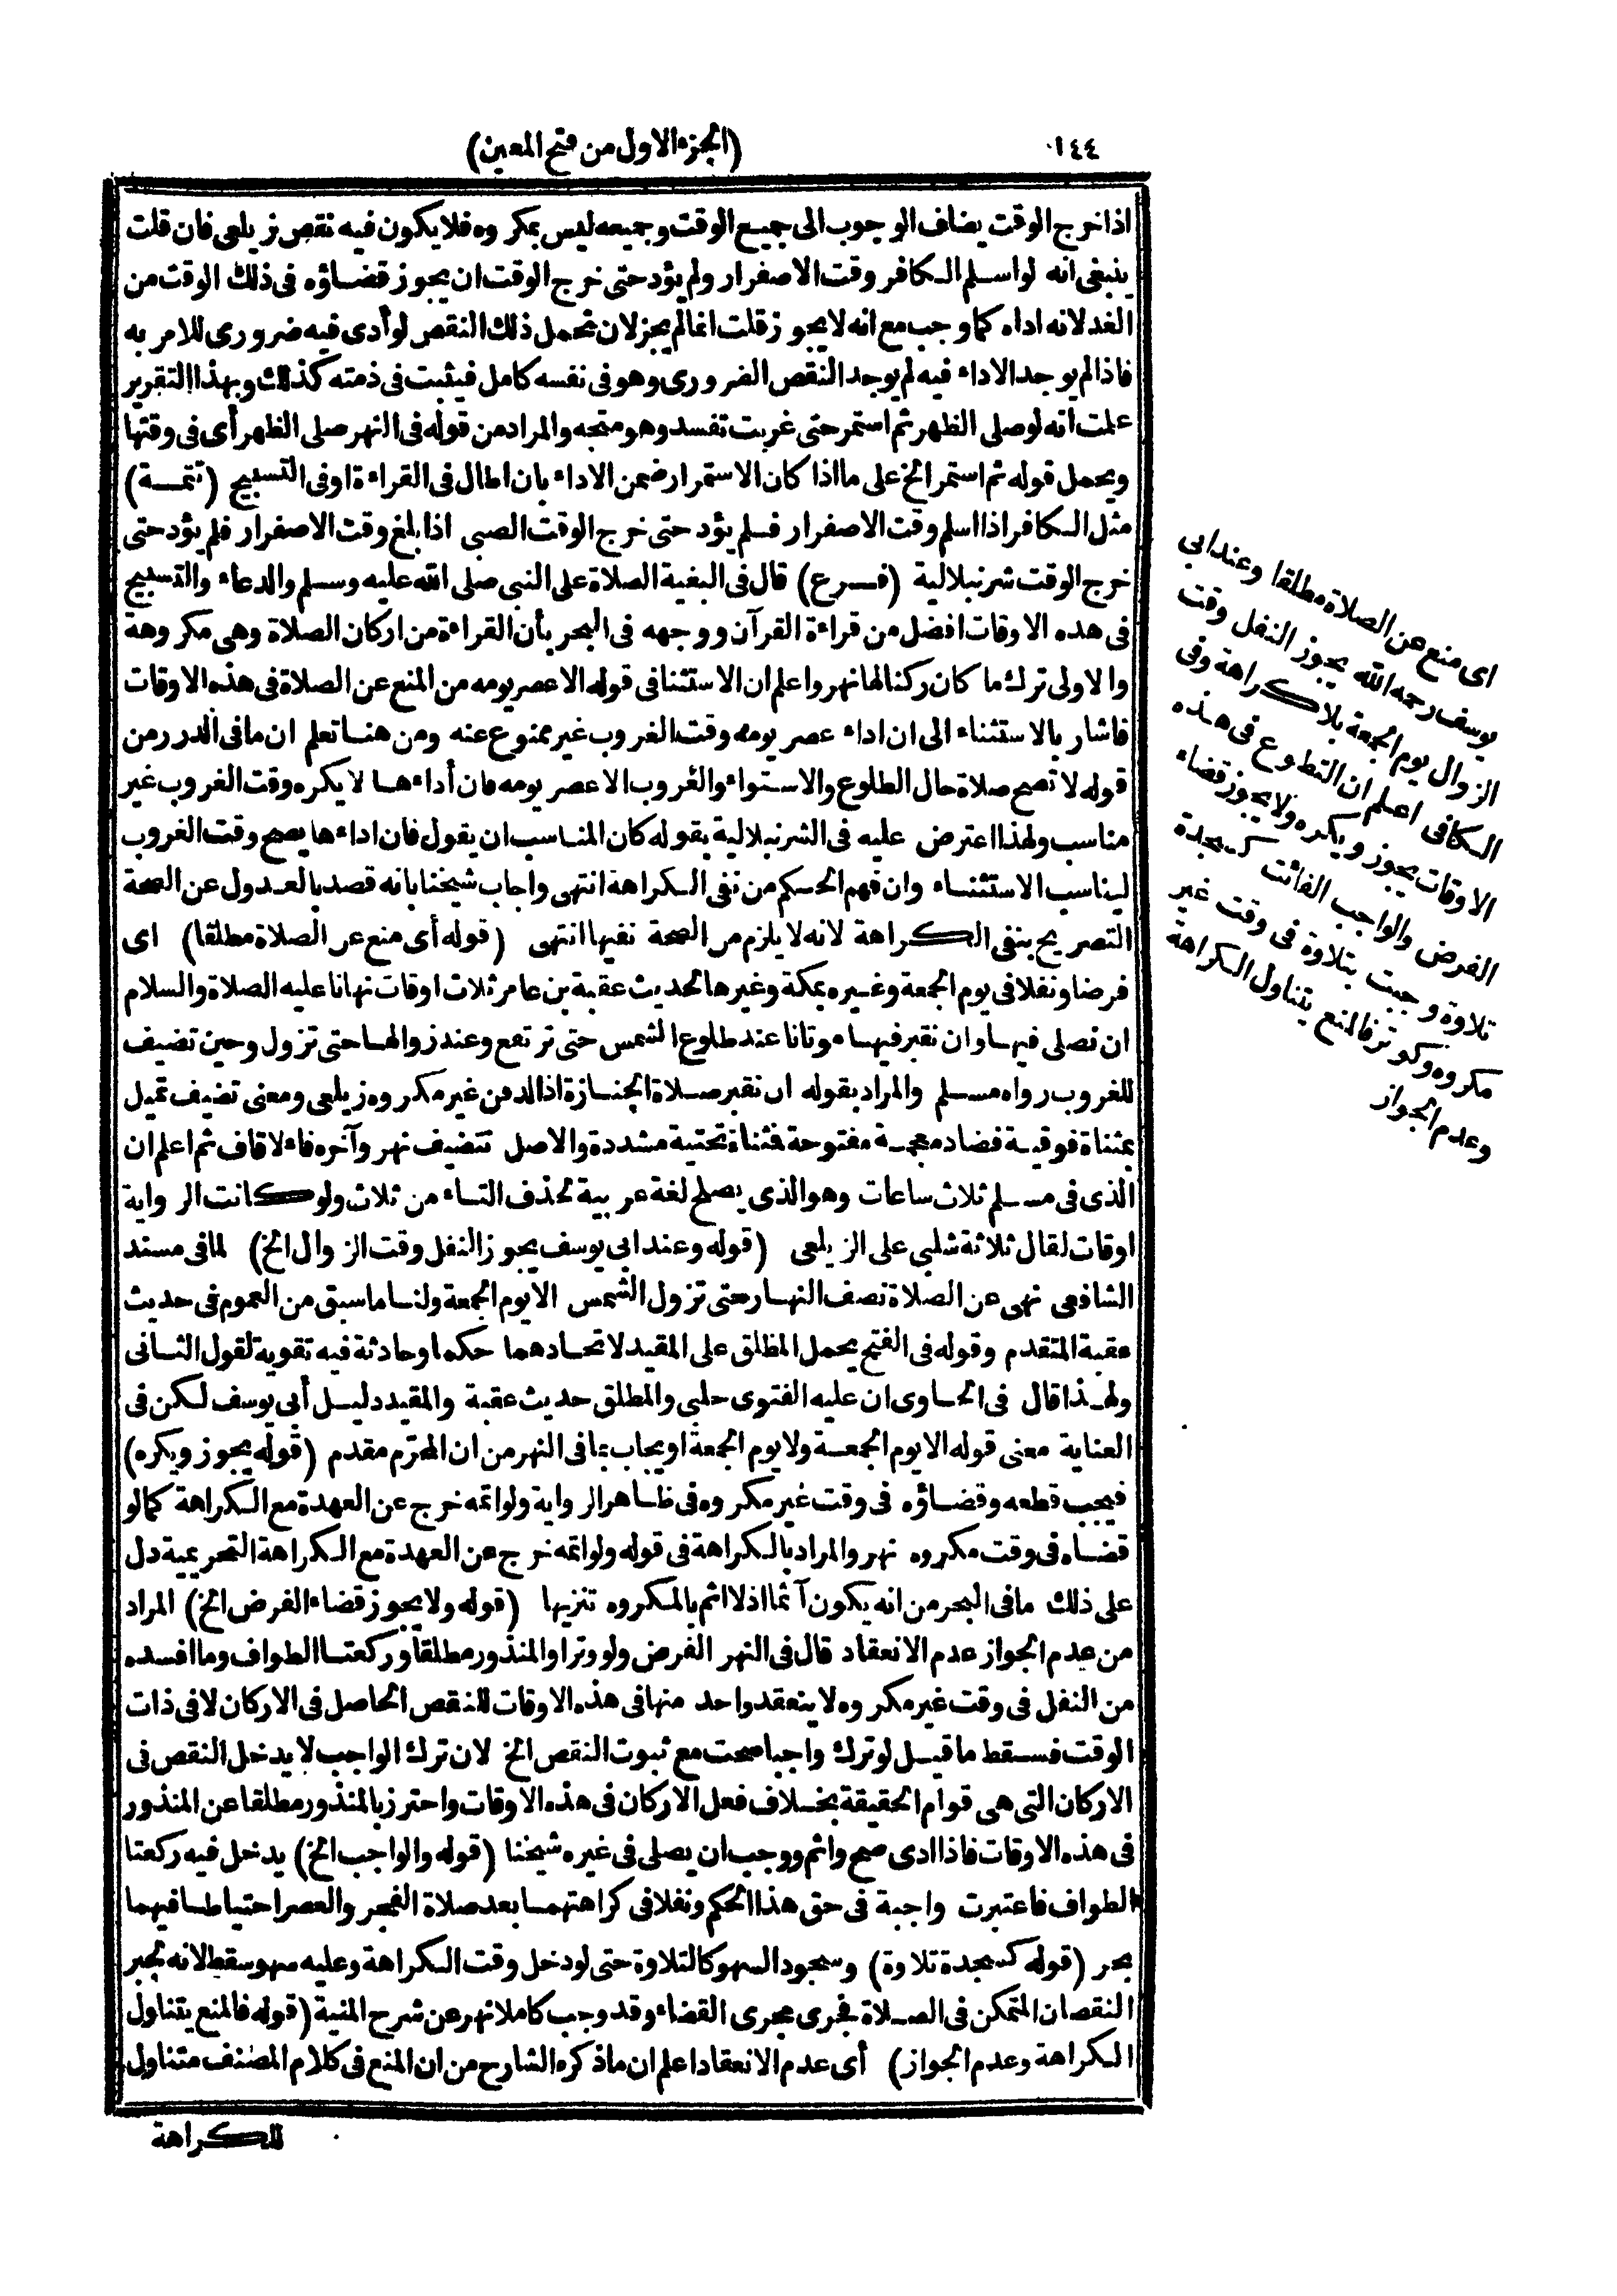 ١٤٤
(الجزء الاول من فتح المعين)
اذا خرج الوقت يضاف الوجوب الى جميع الوقت وجميعه ليس بمكروه فلا يكون فيه نقص زيلعى فان قلت
ينبغى انه لو اسلم الكافر وقت الاصفرار ولم يؤد حتى خرج الوقت ان يجوز قضاؤه فى ذلك الوقت من
الغد لانه اداه كما وجب مع انه لا يجوز قلت انما لم يجز لان تحمل ذلك النقص لو أدى فيه ضرورى للامر به
فاذا لم يوجد الاداء فيه لم يوجد النقص الضرورى وهو فى نفسه كامل فيثبت فى ذمته كذلك وبهذا التقرير
علمت انه لو صلى الظهر ثم استمر حتى غربت تفسد وهو متجه والمراد من قوله فى النهر صلى الظهر أى فى وقتها
ويحمل قوله ثم استمر الخ على ما اذا كان الاستمرار ضمن الاداء بان اطال فى القراءة او فى التسبيح (تتمة)
مثل الكافر اذا اسلم وقت الاصفرار فلم يؤد حتى خرج الوقت الصبى اذا بلغ وقت الاصفرار فلم يؤد حتى
خرج الوقت شرنبلالية (فرع) قال فى البغية الصلاة على النبى صلى الله عليه وسلم والدعاء والتسبيح
فى هده الاوقات افضل من قراءة القرآن ووجهه فى البحر بأن القراءة من اركان الصلاة وهى مكروهة
والاولى ترك ما كان ركنا لها نهر واعلم ان الاستثنا فى قوله الا عصر يومه من المنع عن الصلاة فى هذه الاوقات
فاشار بالاستثناء الى ان اداء عصر يومه وقت الغروب غير ممنوع عنه ومن هنا تعلم ان ما فى الدرر من
قوله لا تصح صلاة حال الطلوع والاستواء والغروب الا عصر يومه فان أداءها لا يكره وقت الغروب غير
مناسب ولهذا اعترض عليه فى الشرنبلالية بقوله كان المناسب ان يقول فان اداءها يصح وقت الغروب
ليناسب الاستثناء وان فهم الحكم من نفى الكراهة انتهى واجاب شيخنا بانه قصد بالعدول عن الصحة
التصريح بنفى الكراهة لانه لا يلزم من الصحة نفيها انتهى (قوله أى منع عن الصلاة مطلقا) اى
فرضا ونفلا فى يوم الجمعة وغيره بمكة وغيرها لحديث عقبة بن عامر ثلاث اوقات نهانا عليه الصلاة والسلام
ان نصلى فيها وان نقبر فيها موتانا عند طلوع الشمس حتى ترتفع وعند زوالها حتى تزول وحين تضيف
للغروب رواه مسلم والمراد بقوله ان نقبر صلاة الجنازة اذ الدفن غير مكروه زيلعى ومعنى تضيف تميل
بمثناة فوقية فضاد معجمة مفتوحة فمثناة تحتية مشددة والاصل تتضيف نهر وآخره فاء لا قاف ثم اعلم ان
الذى فى مسلم ثلاث ساعات وهو الذى يصلح لغة عربية لحذف التاء من ثلاث ولو كانت الرواية
اوقات لقال ثلاثة شلبى على الزيلعى (قوله وعند ابى يوسف يجوز النفل وقت الزوال الخ) لما فى مسند
الشافعى نهى عن الصلاة نصف النهار حتى تزول الشمس الا يوم الجمعة ولنا ما سبق من العموم فى حديث
عقبة المتقدم وقوله فى الفتح يحمل المطلق على المقيد لاتحادهما حكما وحادثة فيه تقوية لقول الثانى
ولهذا قال فى الحاوى ان عليه الفتوى حلبى والمطلق حديث عقبة والمقيد دليل أبى يوسف لكن فى
العناية معنى قوله الا يوم الجمعة ولا يوم الجمعة او يجاب بما فى النهر من ان المحرم مقدم (قوله يجوز ويكره)
فيجب قطعه وقضاؤه فى وقت غير مكروه فى ظاهر الرواية ولو اتمه خرج عن العهدة مع الكراهة كما لو
قضاه فى وقت مكروه نهر والمراد بالكراهة فى قوله ولو اتمه خرج عن العهدة مع الكراهة التحريمية دل
على ذلك ما فى البحر من انه يكون آثما اذ لا اثم بالمكروه تنزيها (قوله ولا يجوز قضاء الفرض الخ) المراد
من عدم الجواز عدم الانعقاد قال فى النهر الفرض ولو وترا والمنذور مطلقا وركعتا الطواف وما افسده
من النفل فى وقت غير مكروه لا ينعقد واحد منها فى هذه الاوقات للنقص الحاصل فى الاركان لا فى ذات
الوقت فسقط ما قيل لو ترك واجبا صحت مع ثبوت النقص الخ لان ترك الواجب لا يدخل النقص فى
الاركان التى هى قوام الحقيقة بخلاف فعل الاركان فى هذه الاوقات واحترز بالمنذور مطلقا عن المنذور
فى هذه الاوقات فاذا ادى صح واثم ووجب ان يصلى فى غيره شيخنا (قوله والواجب الخ) يدخل فيه ركعتا
الطواف فاعتبرت واجبة فى حق هذا الحكم ونفلا فى كراهتهما بعد صلاة الفجر والعصر احتياطا فيهما
بحر (قوله كسجدة تلاوة) وسجود السهو كالتلاوة حتى لو دخل وقت الكراهة وعليه سهو سقط لانه تجبر
النقصان المتمكن فى الصلاة فجرى مجرى القضاء وقد وجب كاملا نهر عن شرح المنية (قوله فالمنع يتناول
الكراهة وعدم الجواز) أى عدم الانعقاد اعلم ان ما ذكره الشارح من ان المنع فى كلام المصنف متناول
للكراهة
اى منع عن الصلاة مطلقا وعند ابى
يوسف رحمه الله يجوز النفل وقت
الزوال يوم الجمعة بلا كراهة وفى
الكافى اعلم ان التطوع فى هذه
الاوقات يجوز ويكره ولا يجوز قضاء
الفرض والواجب الفائت كسجدة
تلاوة وجبت بتلاوة فى وقت غير
مكروه وكوتر فالمنع يتناول الكراهة
وعدم الجواز